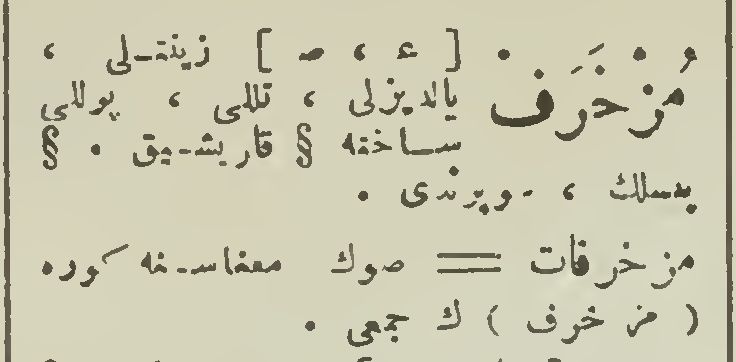 مُزَخْرَفْ . [ ع ، ص ] زینتـلی ،
یالدیزلی ، تللی ، پوللی
ساخته § قاریشـیق . §
پسلك ، سوپرندی .
مزخرفات = صوك معناسـنه كوره
( مزخرف ) ك جمعی .